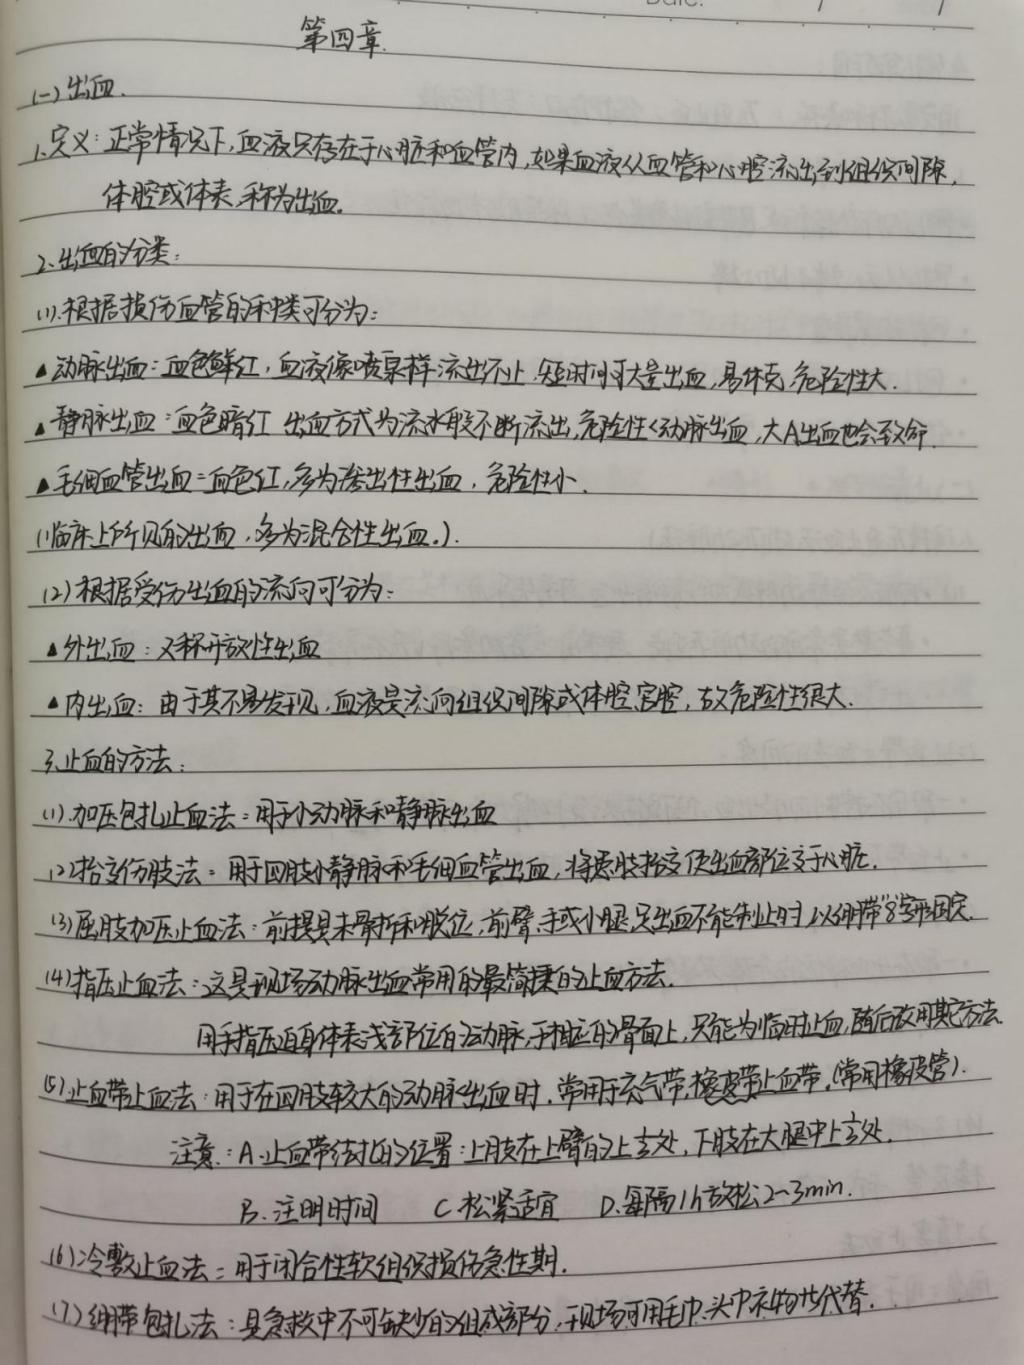 Date.
第四章.
(一)出血.
1.定义:正常情况下,血液只存在于心脏和血管内,如果血液从血管和心腔流出到组织间隙,
体腔或体表,称为出血.
2.出血的分类:
(1).根据损伤血管的种类可分为:
▲动脉出血:血色鲜红,血液像喷泉样流出不止,短时间可大量出血,易休克,危险性大.
▲静脉出血:血色暗红 出血方式为流水般不断流出,危险性<动脉出血,大A出血也会致命.
▲毛细血管出血:血色红,多为渗出性出血,危险性小.
(临床上所见的出血,多为混合性出血.).
(2)根据受伤出血的流向可分为:
▲外出血:又称开放性出血
▲内出血:由于其不易发现,血液是流向组织间隙或体腔,宫腔,故危险性很大.
3.止血的方法:
(1).加压包扎止血法:用于小动脉和静脉出血
(2)抬高伤肢法:用于四肢小静脉和毛细血管出血,将患肢抬高使出血部位高于心脏.
(3)屈肢加压止血法:前提是未骨折和脱位,前臂,手或小腿,足出血不能制止时,以绷带"8"字形固定.
(4)指压止血法:这是现场动脉出血常用的最简捷的止血方法.
用手指压迫身体表浅部位的动脉,于相应的骨面上,只能为临时止血,随后改用其它方法.
(5)止血带止血法:用于在四肢较大的动脉出血时,常用于充气带,橡皮带止血带,(常用橡皮管).
注意:A.止血带结扎的位置:上肢在上臂的上1/3处,下肢在大腿中上1/3处.
B.注明时间 C.松紧适宜 D.每隔1h放松2~3min.
(6)冷敷止血法:用于闭合性软组织损伤急性期.
(7)绷带包扎法:是急救中不可缺少的组成部分,现场可用毛巾.头巾衣物代替.